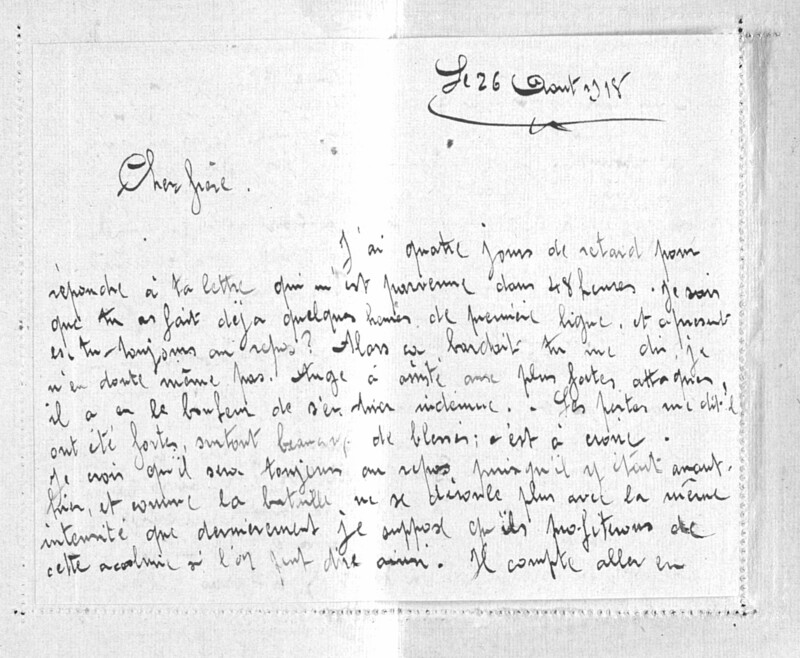 Le 26 Aout 1918
Cher frère.
J'ai quatre jours de retard pour
répondre à ta lettre qui m'est parvenue dans 48 heures. Je vois
que tu as fait déja quelques heures de première ligne, et apresent
es-tu toujours au repos? Alors ça bardait tu me dis, je
n'en doute même pas. Ange à assisté aux plus fortes attaques,
il a eu le bonheur de s'en tirer indemne. - Les pertes me dit-il
ont été fortes, surtout beaucoup de blessés; c'est à croire.
Je crois qu'il sera toujours au repos puisqu'il y était avant-
hier, et comme la bataille ne se déroule plus avec la même
intensité que dernièrement je suppose qu'ils profiterons de
cette acalmie si l'on peut dire ainsi. Il compte aller en